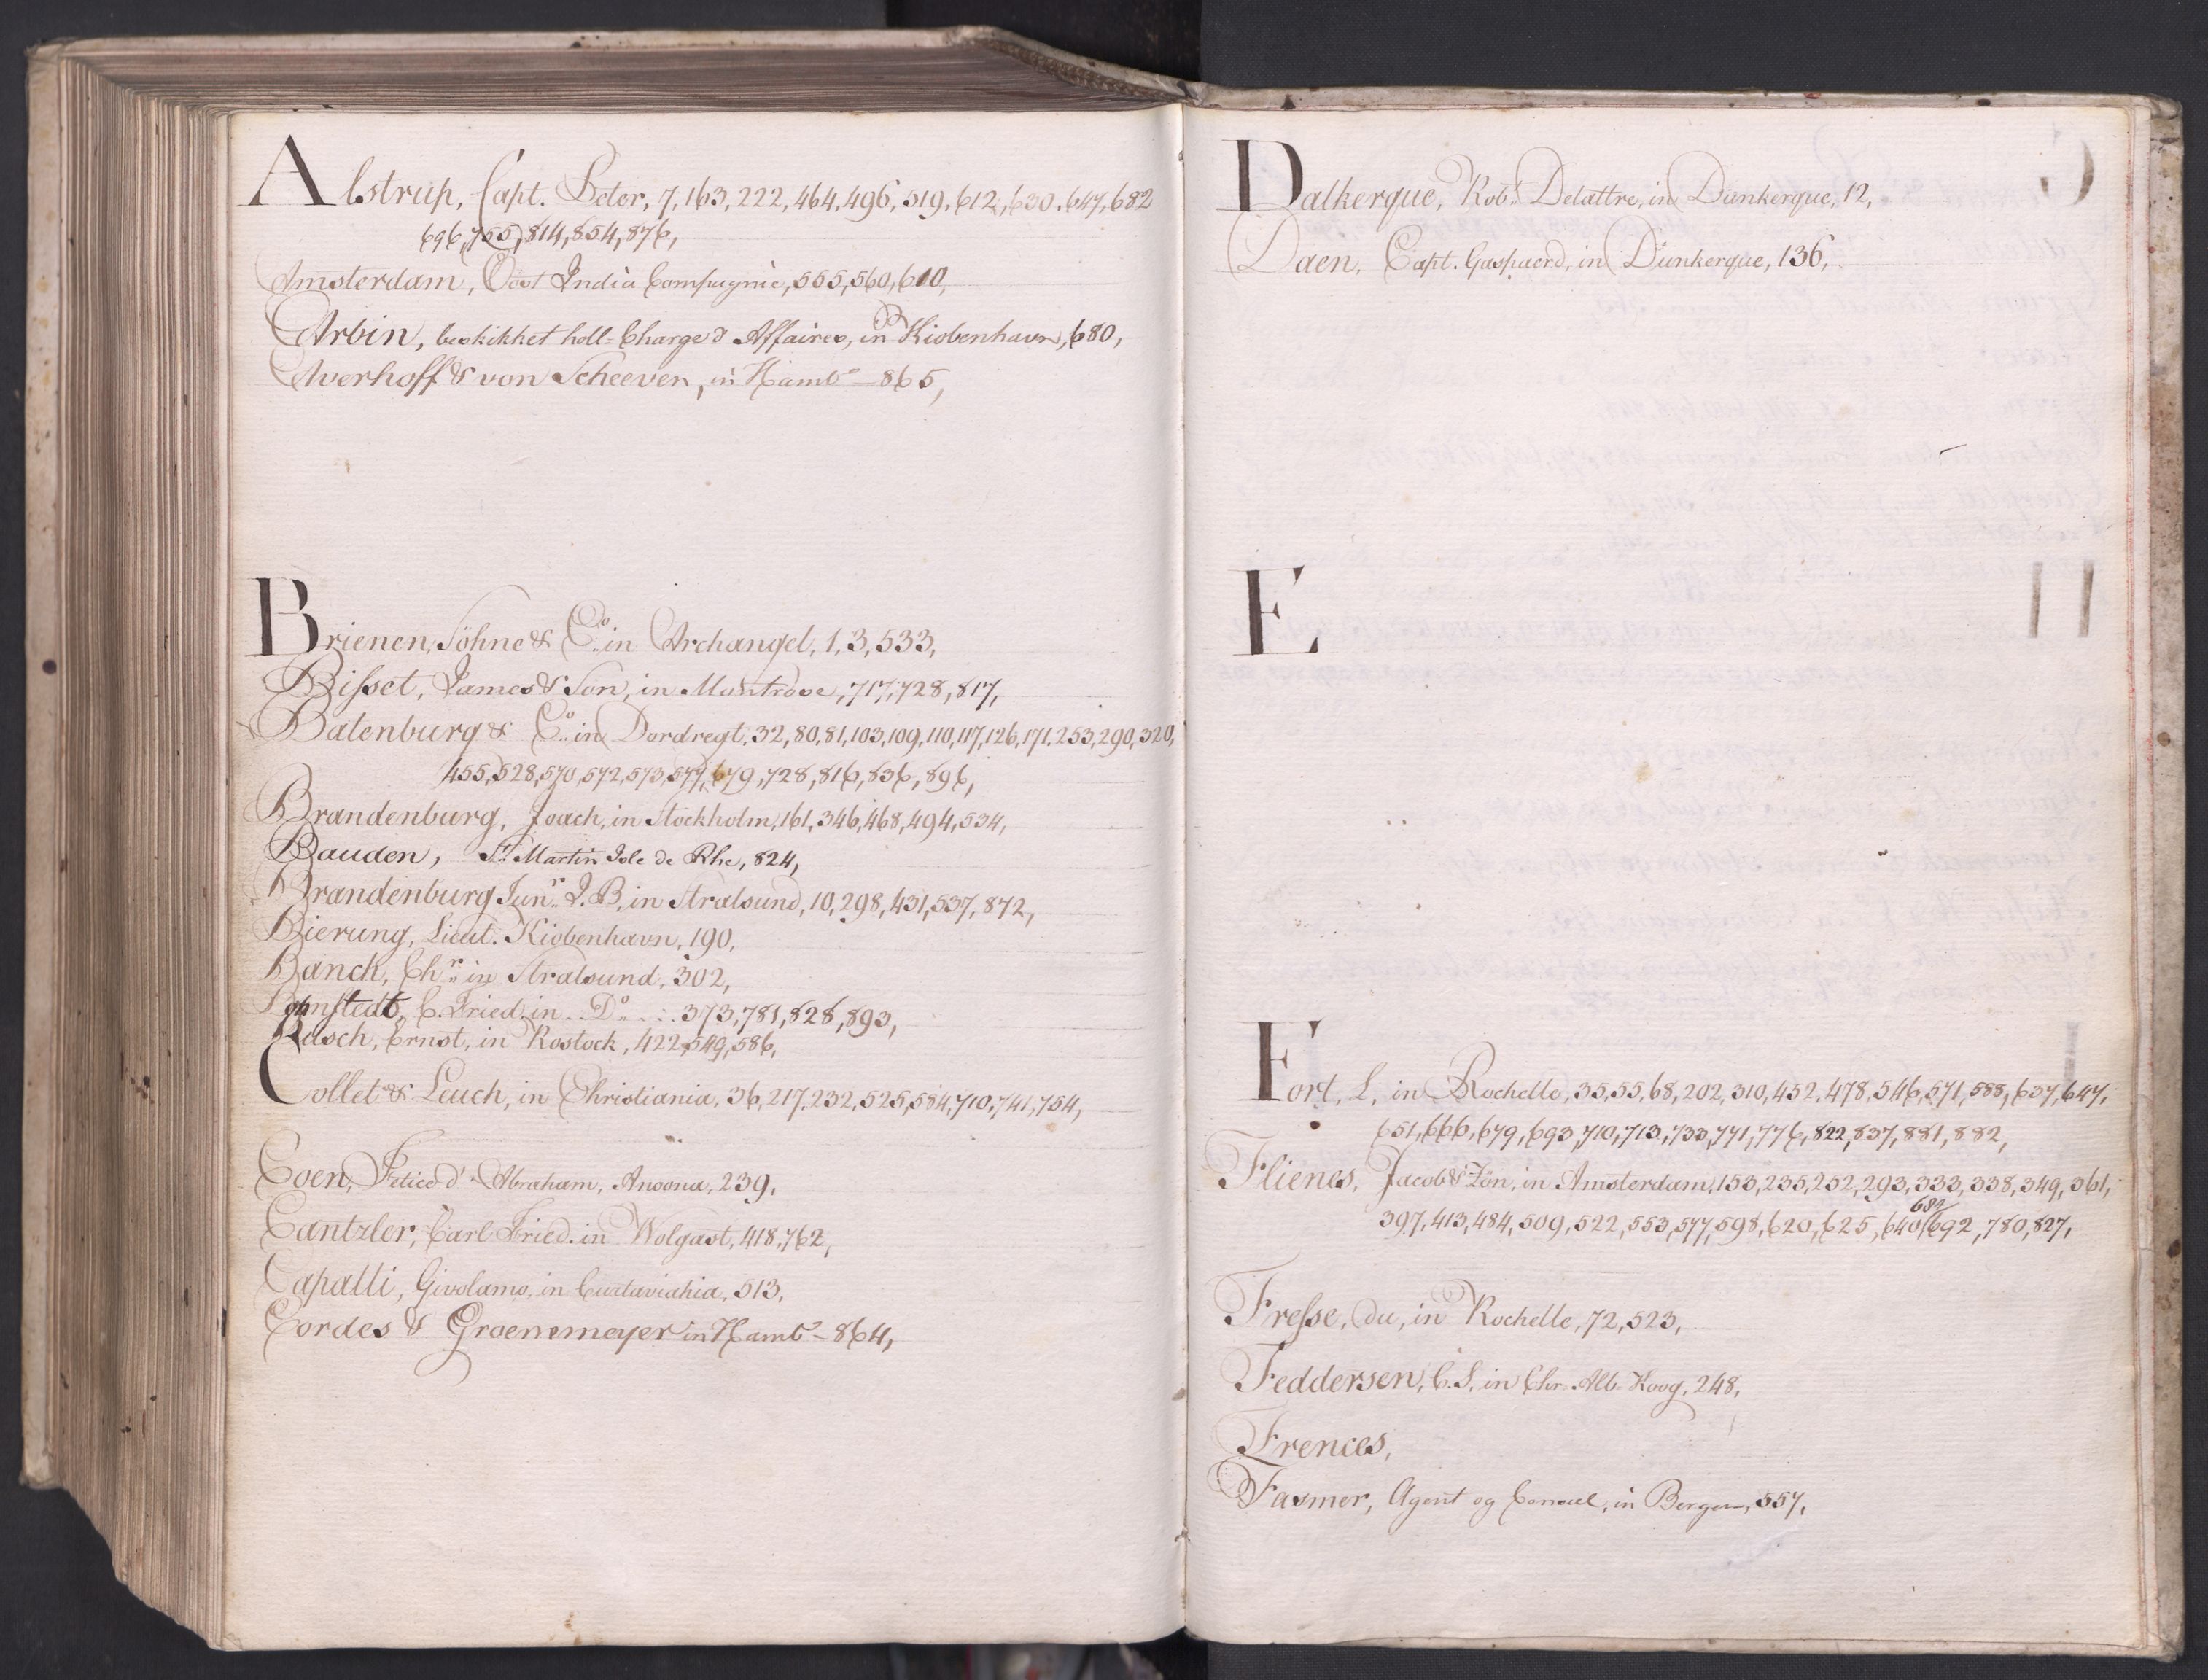 Alstrup, Capt. Peter, 7, 163, 222, 464, 496, 519, 612, 630, 647, 682
696, 755, 814, 854, 876,
Amsterdam, Oost India Compagnie, 555, 560, 610,
Arbin, beskikket holl. Charge d Affaires, in Kiobenhavn, 680,
Averhoff & von Scheeven, in Hambº 865,
Brienen, Söhne & Cº in Archangel, 1, 3, 533,
Bisset, James & Son, in Muntrose, 717, 728, 817,
Batenburg & Cº in Dordregt, 32, 80, 81, 103, 109, 110, 117, 126, 171, 253, 290, 320,
455, 528, 570, 572, 573, 577, 679, 728, 816, 836, 896,
Brandenburg, Joach, in Stockholm, 161, 346, 468, 494, 534,
Bauden, St. Martin Isle de Rhe, 824,
Brandenburg Junr. J. B, in Stralsund, 10, 298, 431, 537, 872,
Bierung, Lieut. Kiobenhavn, 190,
Banck, Chr. in Stralsund, 302,
C. Fried. in Dº 373, 781, 828, 893,
Busch, Ernst, in Rostock, 422, 549, 586,
Collet & Leuch, in Christiania, 36, 217, 232, 525, 584, 710, 741, 754,
Coen, d'Abraham, Anoona, 239,
Cantzler, Carl Fried. in Wolgast, 418, 762,
Capalti, Givolamo, in 513,
Cordes & Groenemeyer in Hambº 864,
Dalkerque, Robt. Delattre, in Dünkerque, 12,
Daen, Capt. Gaspaerd, in Dünkerque, 136,
E
Fort, L, in Rochelle, 35, 55, 68, 202, 310, 452, 478, 546, 571, 588, 637, 647,
651, 666, 679, 693, 710, 713, 733, 771, 776, 822, 837, 881, 882,
Flienes, Jacob & Zön, in Amsterdam, 153, 235, 252, 293, 333, 338, 349, 361,
397, 413, 484, 509, 522, 553, 577, 598, 620, 625, 640, 684, 692, 780, 827,
Fresse, du, in Rochelle, 72, 523,
Feddersen, C. S, in Chr. Alb. Koog, 248,
Frences,
Fasmer, Agent og Consul, in Bergen, 557,